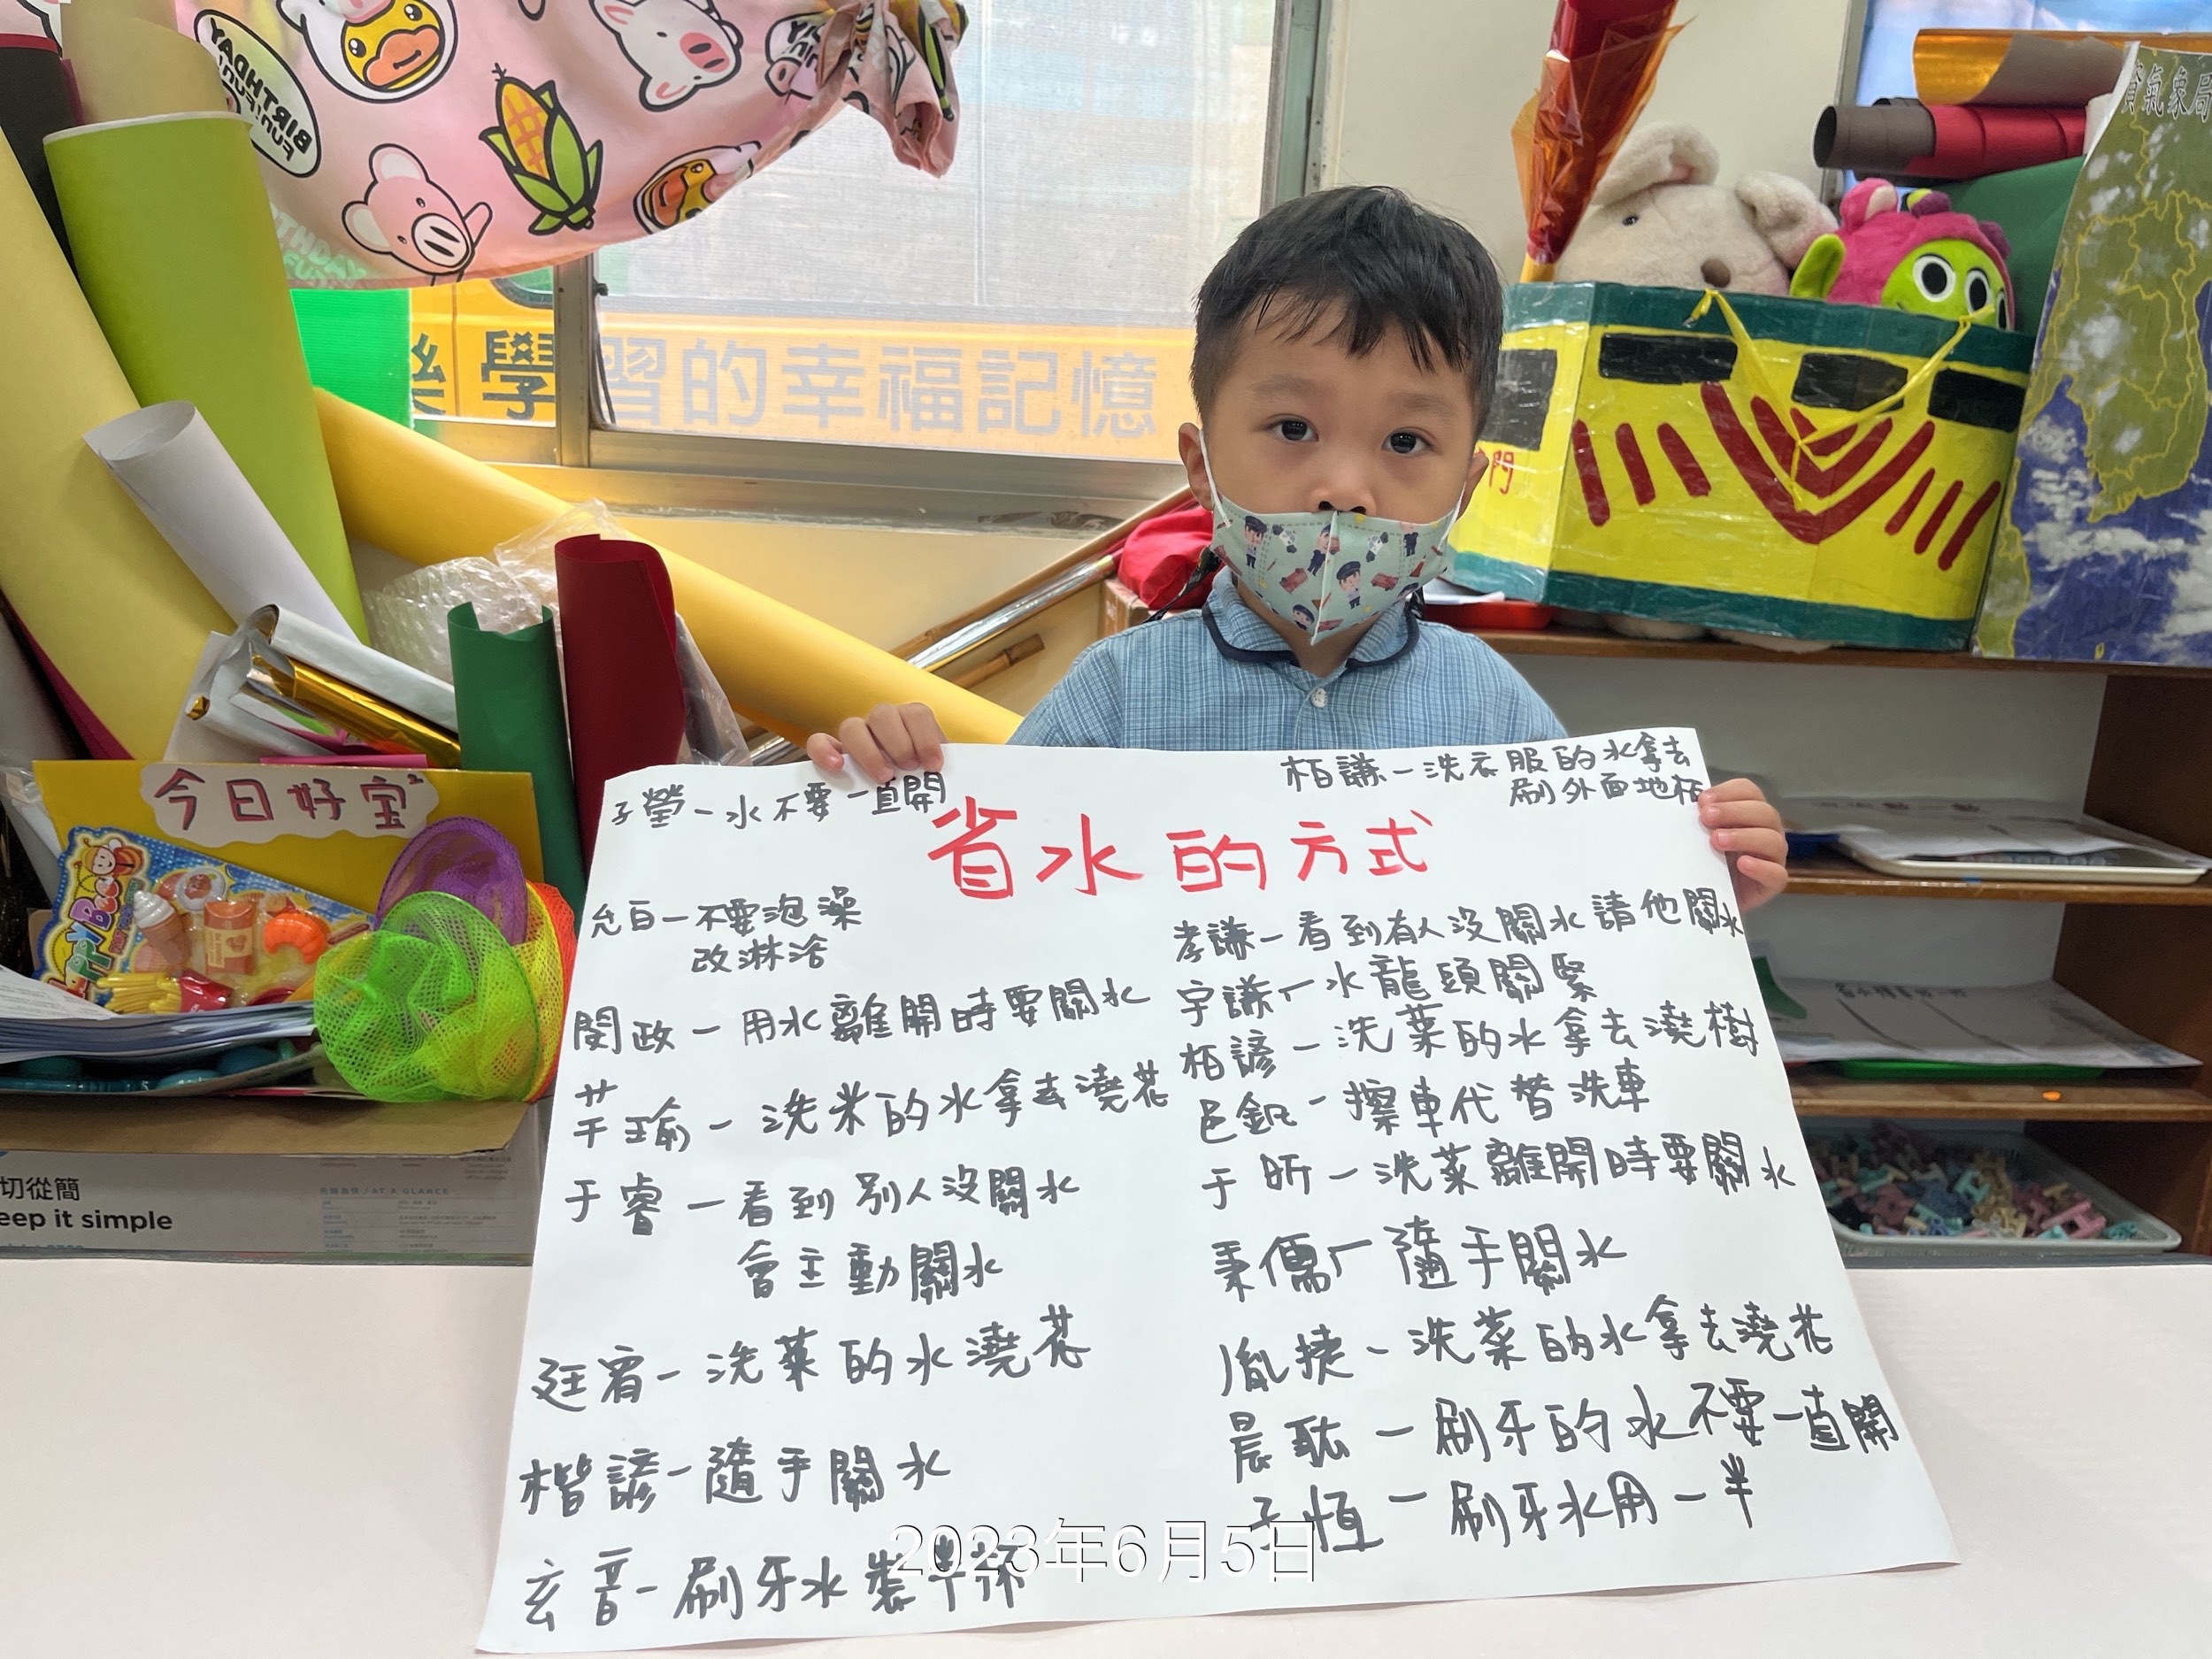 BIRTHDAY
FUN!FUN!
氣象局
樂學習的幸福記憶
門
今日好宝
HAPPY Bee
切從簡
eep it simple
AT A GLANCE
子瑩-水不要一直開
柏謙-洗衣服的水拿去
刷外面地板
省水的方式
允白-不要泡澡
改淋浴
閔政-用水離開時要關水
芊瑜-洗米的水拿去澆花
于睿-看到別人沒關水
會主動關水
廷宥-洗菜的水澆花
楷諺-隨手關水
玄音-刷牙水裝半杯
孝謙-看到有人沒關水請他關水
宇謙-水龍頭關緊
柏諺-洗菜的水拿去澆樹
邑釩-擦車代替洗車
于昕-洗菜離開時要關水
秉儒-隨手關水
胤捷-洗菜的水拿去澆花
晨耘-刷牙的水不要一直開
子恆-刷牙水用一半
2023年6月5日